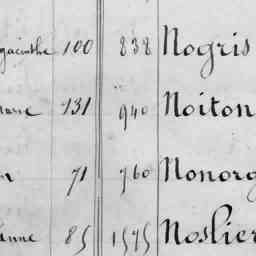 yacinthe 100 838 Nogris
131 940 Noiton
71 760 Nonorg
anne 85 1575 Noslier